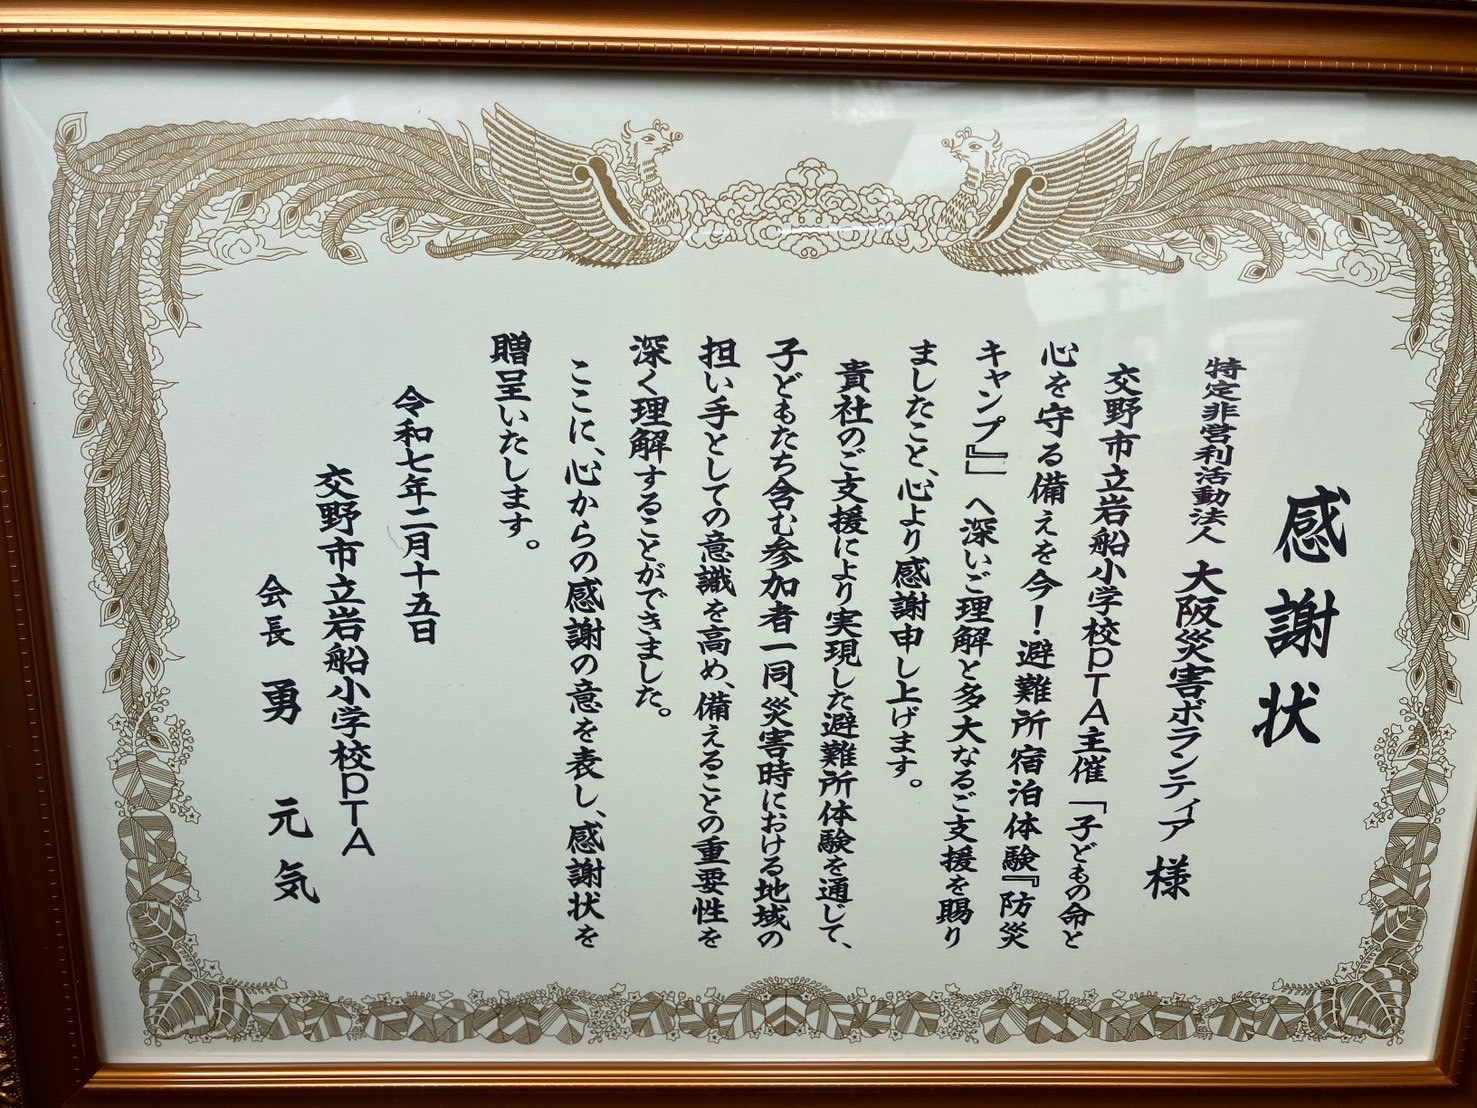 感謝状
特定非営利活動法人 大阪災害ボランティア 様
交野市立岩船小学校PTA主催「子どもの命と
心を守る備えを今！避難所宿泊体験『防災
キャンプ』」へ深いご理解と多大なるご支援を賜り
ましたこと、心より感謝申し上げます。
貴社のご支援により実現した避難所体験を通じて、
子どもたち含む参加者一同、災害時における地域の
担い手としての意識を高め、備えることの重要性を
深く理解することができました。
ここに、心からの感謝の意を表し、感謝状を
贈呈いたします。
令和七年二月十五日
交野市立岩船小学校PTA
会長 勇 元気